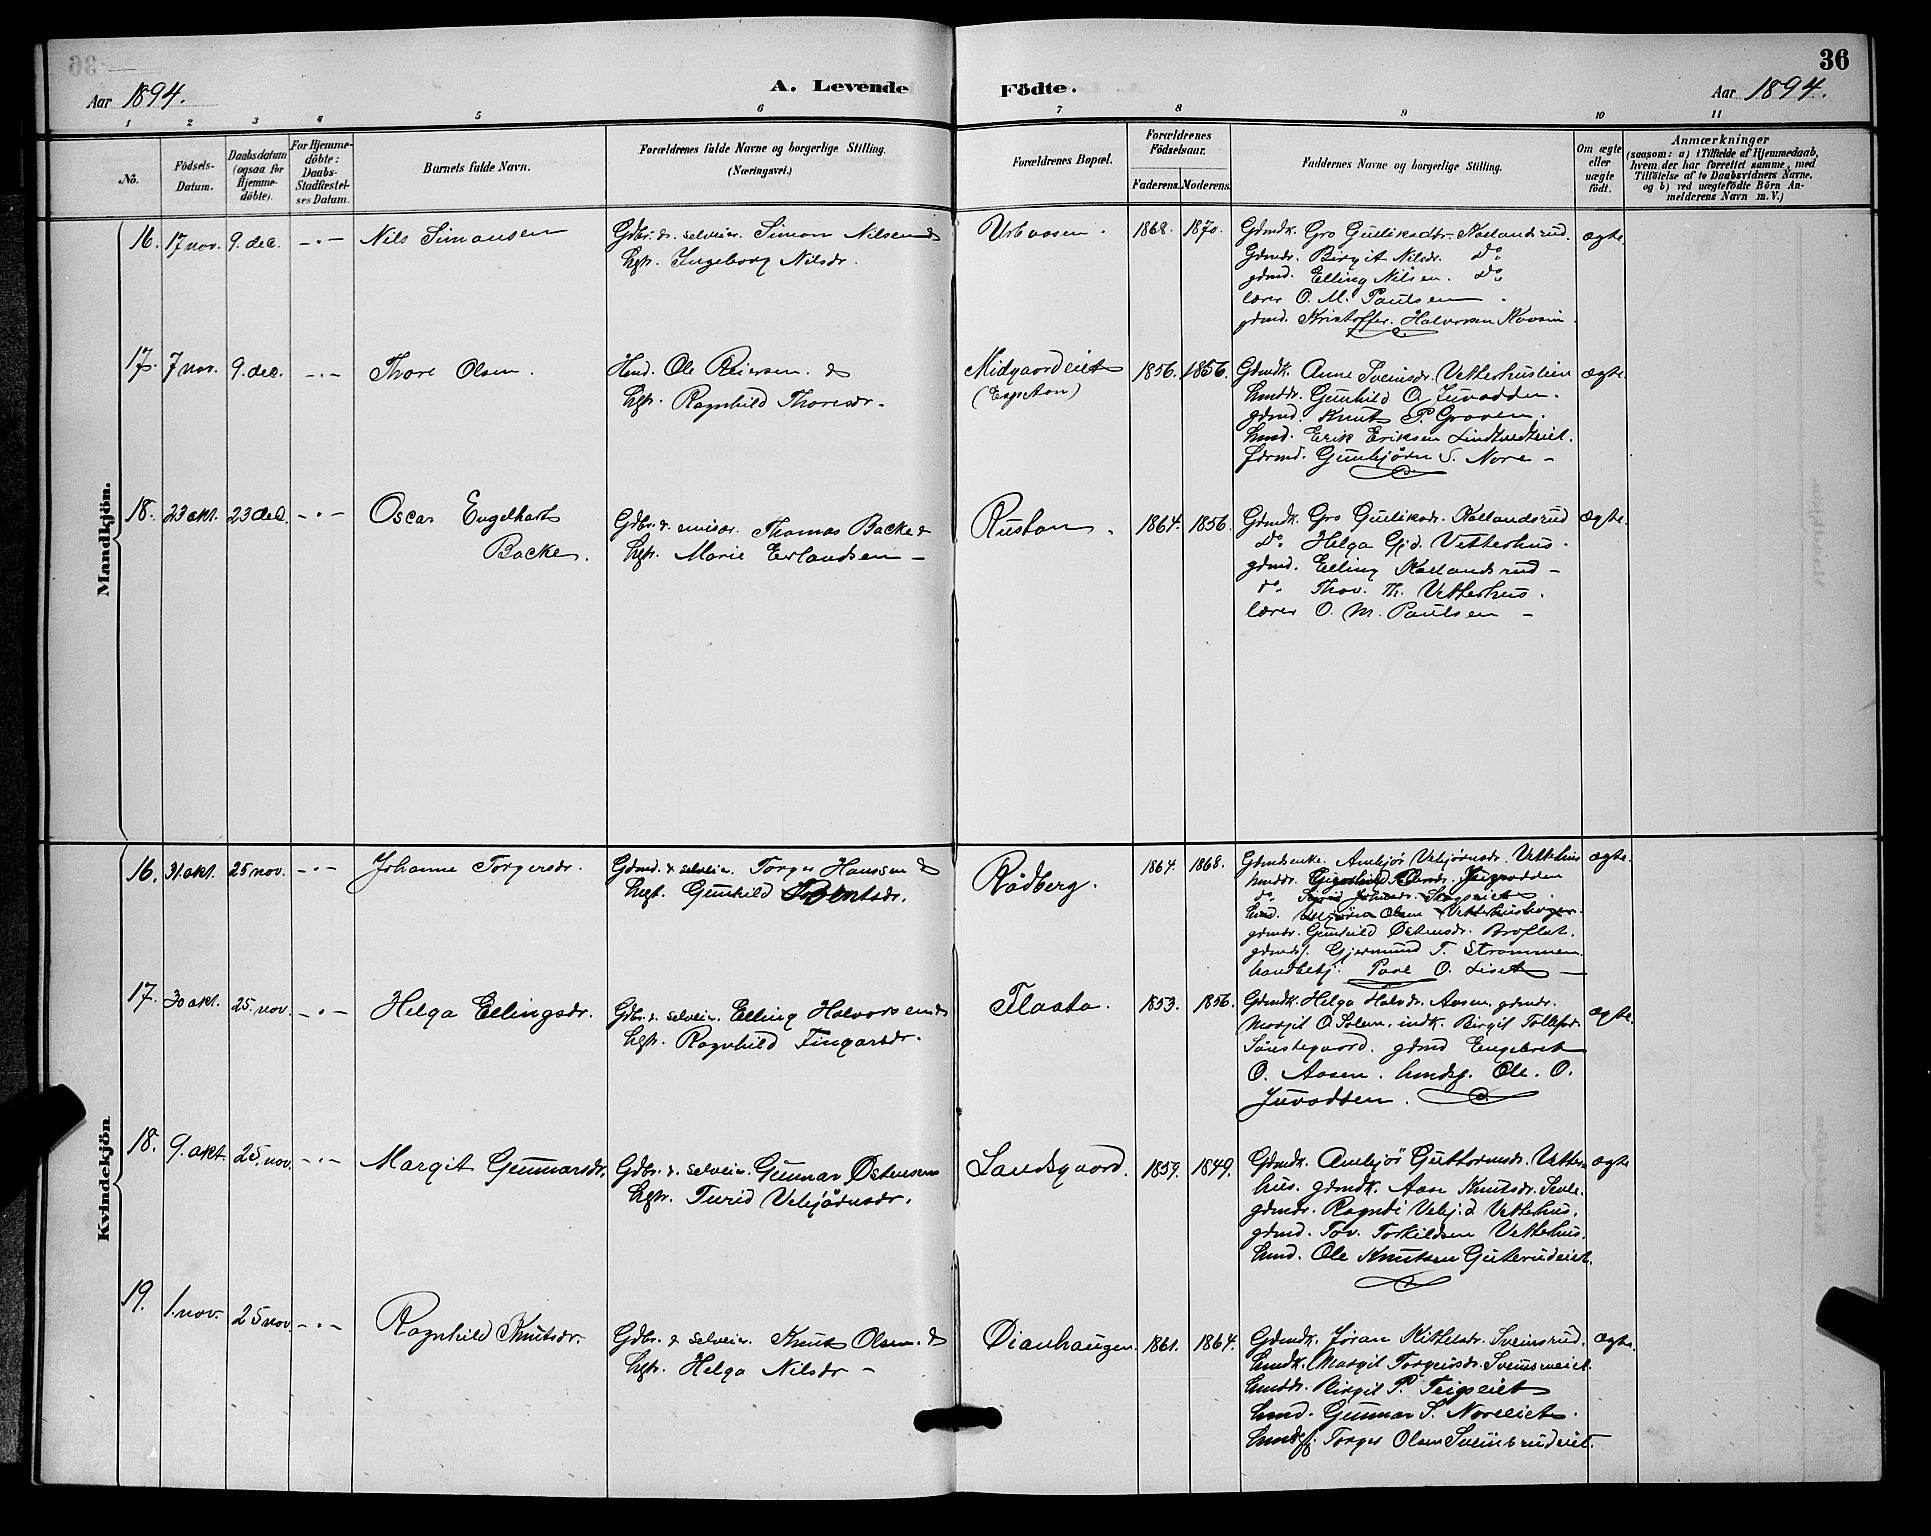 36
Aar 1894.
A. Levende Födte.
Aar 1894.
1 2 3 4 5 6 7 8 9 10 11
No.
Födsels-
Datum.
Daabsdatum
(ogsaa for
Hjemme-
döbte).
For Hjemme-
döbte:
Daabs-
Stadfæstel-
ses Datum.
Barnets fulde Navn.
Forældrenes fulde Navne og borgerlige Stilling.
(Næringsvei.)
Forældrenes Bopæl.
Forældrenes
Födselsaar.
Faderens. Moderens.
Faddernes Navne og borgerlige Stilling.
Om ægte
eller
uægte
födt.
Anmærkninger
(saasom: a) i Tilfælde af Hjemmedaab,
hvem der har forrettet samme, med
Tilföielse af to Daabsvidners Navne,
og b) ved uægtefödte Börn An-
melderens Navn m. V.)
Mandkjön.
16. 17 nov. 9. dec. - " -
Nils Simonsen
Gdbr. & selveier. Simon Nilsen &
hstr. Ingeborg Nilsdr.
1868. 1870.
Gdmdk. Gro Guliksdtr. Kollandsrud.
Gdmdr. Birgit Nilsdr. Do
gdmd. Elling Nilsen. Do
lærer O. M. Paulsen
gdmd. Kristoffer Halvorsen
ægte.
17. 7 nov. 9. dec. - " -
Thore Olsen.
Hmd. Ole Reiersen. &
hstr. Ragnhild Thoresdr.
Midgaardeiet
1856. 1856.
Gdmdk. Anne Sveinsdr.
hmddr. Gunhild O. Juvodden.
gdmd. Knut P. Groven.
hmd. Erik Eriksen
gdmd. Gunbjörn S. Nore -
ægte
18. 23 okt. 23 dec. - " -
Oscar Engelhart
Backe.
Gdbr. & Thomas Backe &
hstr. Marie Erlandsen -
Rustan.
1864. 1856.
Gdmdk. Gro Guliksdr. Kollandsrud
Do Helga Vetterhus.
gdmd. Elling Kollandsrud -
do Thov. Th. Vetterhus.
lærer O. M. Paulsen -
ægte.
Kvindekjön
16. 31. okt. 25 nov. - " -
Johanne Torgersdr.
Gdmd. & selveier. Torger Hanssen &
hstr. Gunhild
Rödberg.
1864. 1868.
Vebjörnsdr. Vetterhus
gdmdr. Gunhild Östensdr. Broflat.
Gjermund T. Strømmen
Paul O. Liset -
ægte.
17. 30 okt. 25. nov. - " -
Helga Ellingsdr.
Gdbr. & selveier. Elling Halvorsen &
hstr. Ragnhild Fingarsdr.
Flaata.
1853. 1856.
Gdmdk. Helga Halvdr. Aasen, gdmdr.
Margit O. Solem, indk. Birgit Tollefsdr.
gdmd Engebret
O. Aasen. Ole. O.
Juvodden.
ægte.
18. 9. okt. 25. nov. - " -
Margit Gunnarsdr.
Gdbr. & selveier. Gunnar Östensen
hstr. Turid Vebjörnsdr.
Landsgaard.
1859. 1849.
Gdmdk. Guttormsdr. Vetter-
hus. gdmdk. Aase Knutsdr.
gdmdr. Ragndi Vebj.d Vetterhus.
gdmd. Tov. Torkildsen Vetterhus.
hmd. Ole Knutsen
ægte
19. 1. nov. 25 nov. - " -
Ragnhild Knutsdr.
Gdbr. & selveier. Knut Olsen. &
hstr. Helga Nilsdr -
1861. 1864.
Gdmdk. Jøran Kittelsdr. Sveinsrud.
hmdk. Margit Torgersdr.
hmddr. Birgit P. Teigseiet
hmd. Gunnar S. Noreeiet.
Torger Olsen Sveinsrudeiet.
ægte.